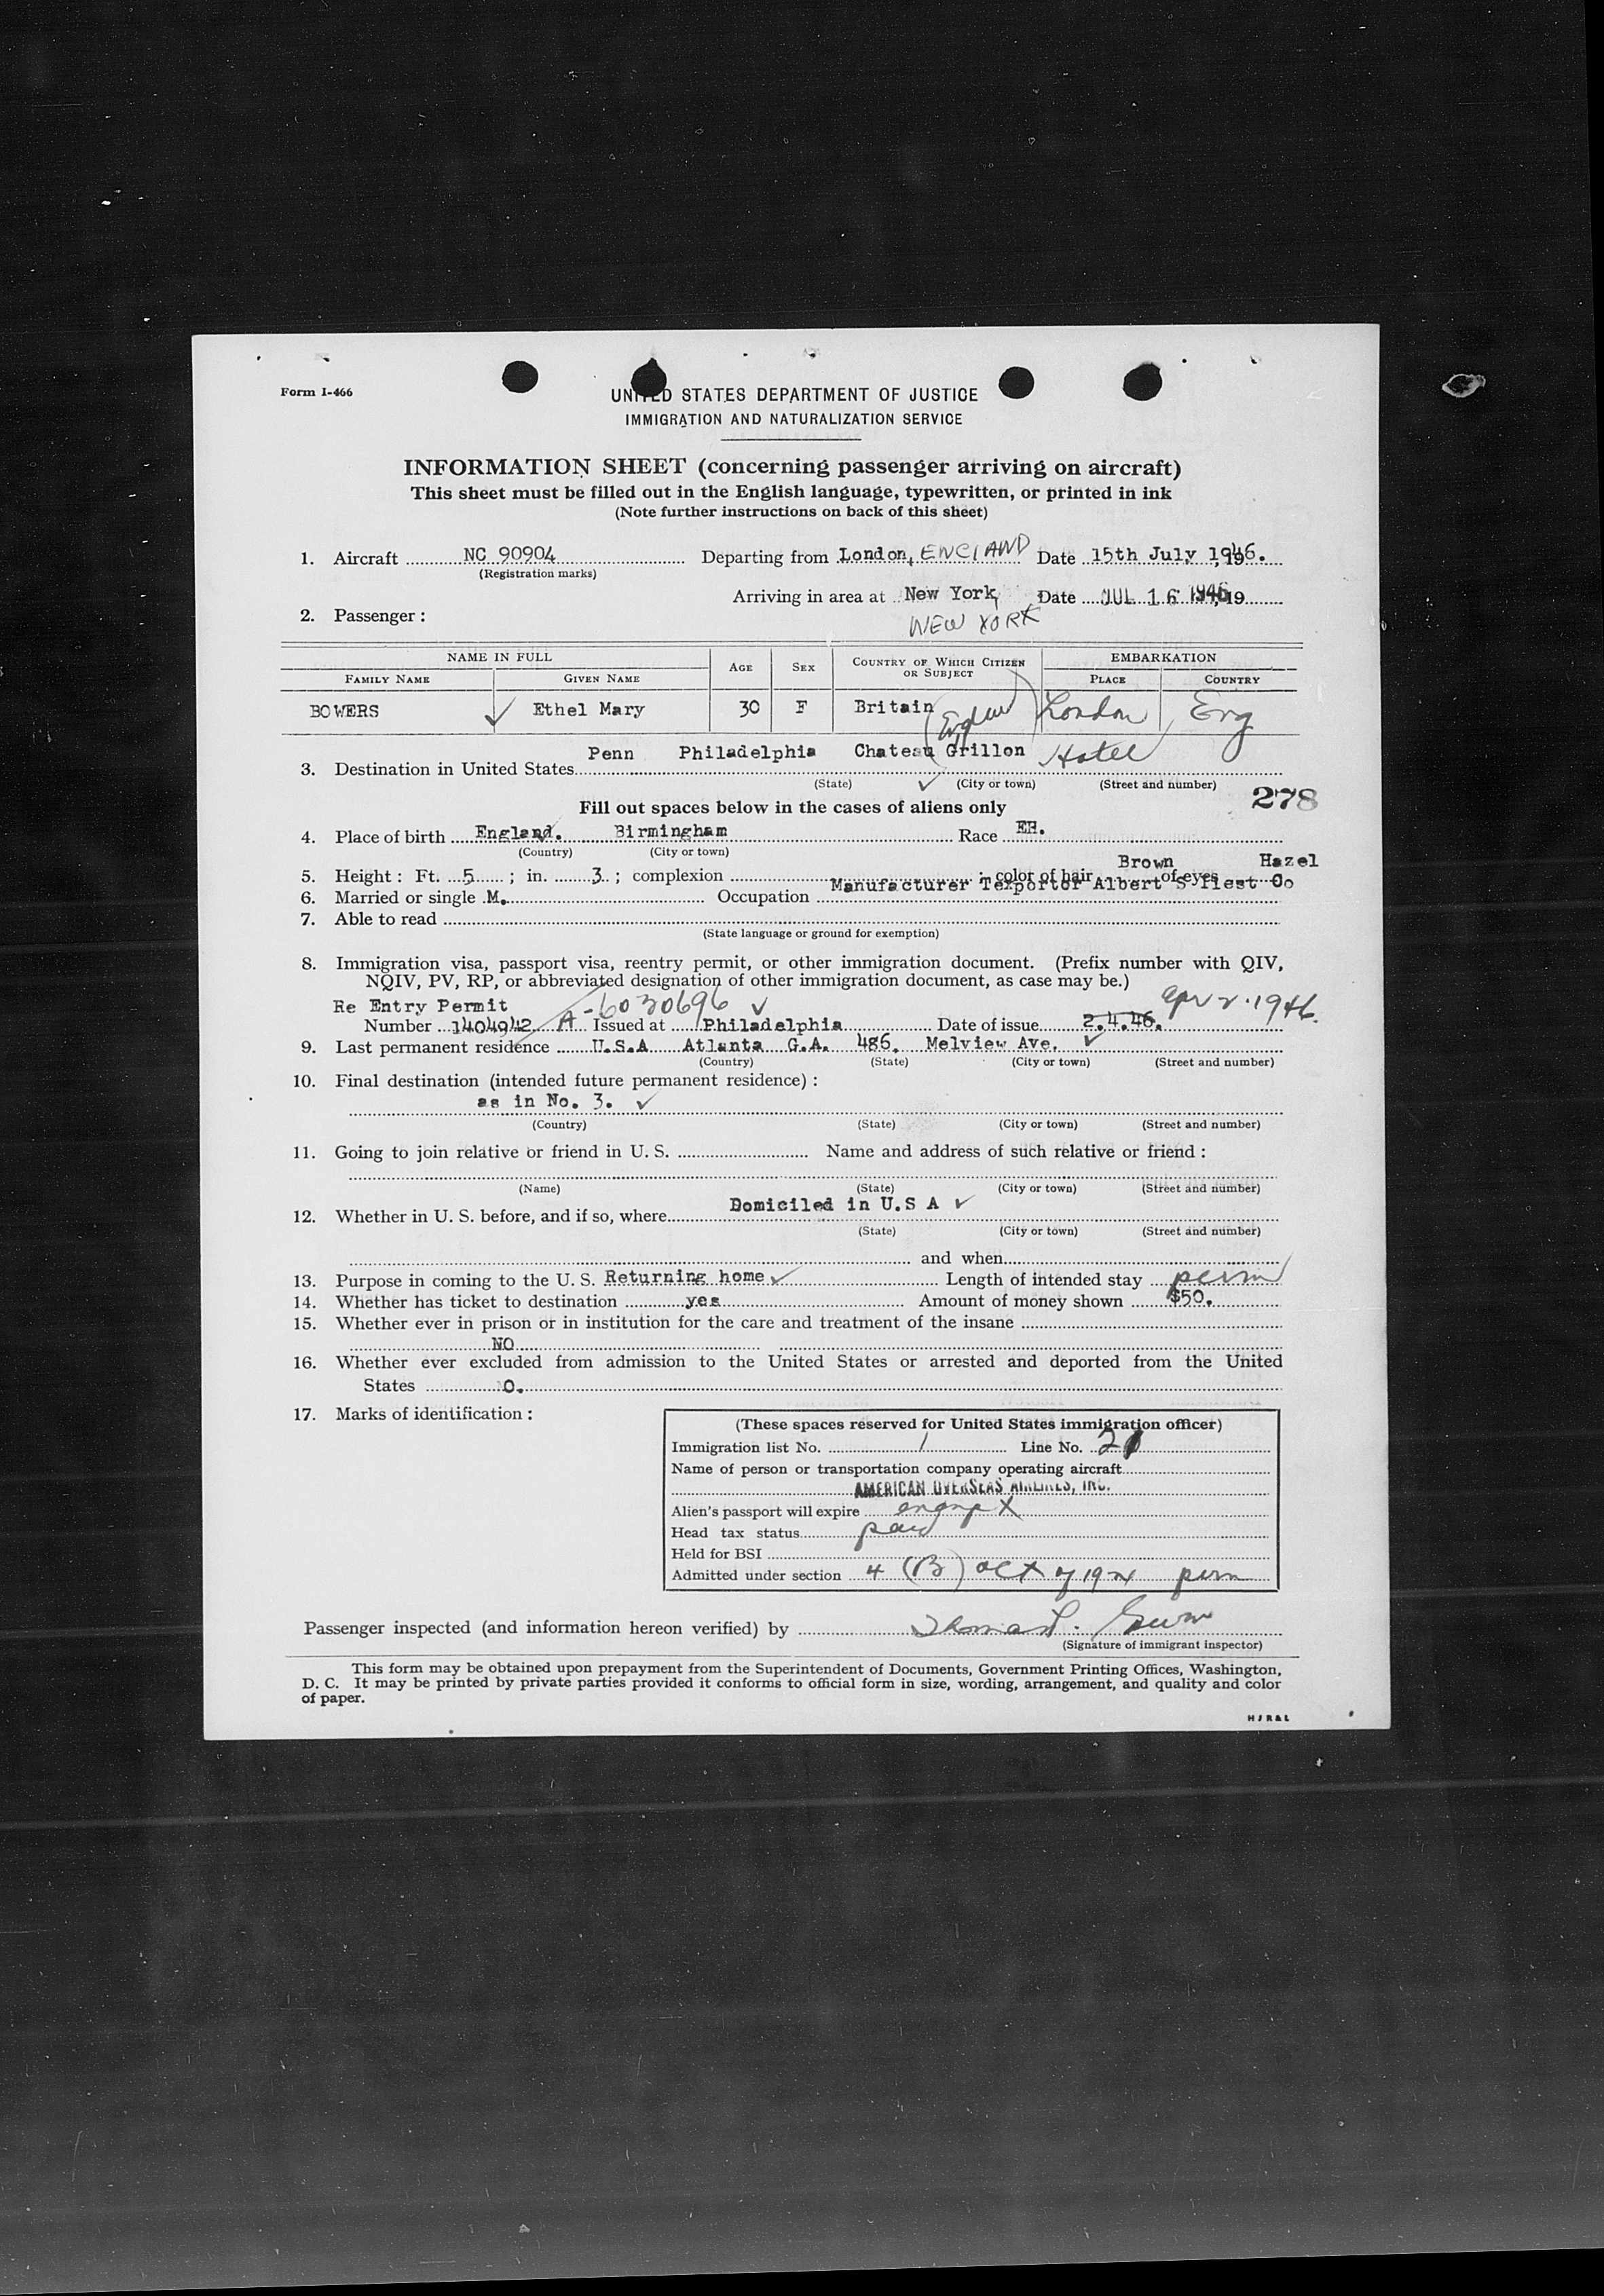 Form I-466
UNITED STATES DEPARTMENT OF JUSTICE
IMMIGRATION AND NATURALIZATION SERVICE
INFORMATION SHEET (concerning passenger arriving on aircraft)
This sheet must be filled out in the English language, typewritten, or printed in ink
(Note further instructions on back of this sheet)
1. Aircraft NC 90904 Departing from London, ENGLAND Date 15th July, 1946.
(Registration marks)
Arriving in area at New York, Date JUL 16 1946, 19
2. Passenger: NEW YORK
NAME IN FULL AGE SEX COUNTRY OF WHICH CITIZEN OR SUBJECT EMBARKATION
FAMILY NAME GIVEN NAME PLACE COUNTRY
BOWERS Ethel Mary 30 F Britain London Eng
3. Destination in United States Penn Philadelphia Chateau Grillon Hotel
(State) (City or town) (Street and number)
278
Fill out spaces below in the cases of aliens only
4. Place of birth England. Birmingham Race EH.
(Country) (City or town)
5. Height: Ft. 5; in. 3; complexion ; color of hair Brown of eyes Hazel
6. Married or single M. Occupation Manufacturer Albert S
7. Able to read
(State language or ground for exemption)
8. Immigration visa, passport visa, reentry permit, or other immigration document. (Prefix number with QIV,
NQIV, PV, RP, or abbreviated designation of other immigration document, as case may be.)
Re Entry Permit A-6030696 Apr 2. 1946.
Number 1404942 Issued at Philadelphia Date of issue 2.4.46.
9. Last permanent residence U.S.A Atlanta G.A. 486. Melview Ave.
(Country) (State) (City or town) (Street and number)
10. Final destination (intended future permanent residence):
as in No. 3.
(Country) (State) (City or town) (Street and number)
11. Going to join relative or friend in U. S. Name and address of such relative or friend:
(Name) (State) (City or town) (Street and number)
12. Whether in U. S. before, and if so, where Domiciled in U.S A
(State) (City or town) (Street and number)
and when
13. Purpose in coming to the U. S. Returning home Length of intended stay perm
14. Whether has ticket to destination yes Amount of money shown $50.
15. Whether ever in prison or in institution for the care and treatment of the insane
NO
16. Whether ever excluded from admission to the United States or arrested and deported from the United
States O.
17. Marks of identification:
(These spaces reserved for United States immigration officer)
Immigration list No. 1 Line No. 2
Name of person or transportation company operating aircraft
AMERICAN OVERSEAS AIRLINES, INC.
Alien's passport will expire
Head tax status paid
Held for BSI
Admitted under section 4 (B) act of 1924 perm
Passenger inspected (and information hereon verified) by
(Signature of immigrant inspector)
This form may be obtained upon prepayment from the Superintendent of Documents, Government Printing Offices, Washington,
D. C. It may be printed by private parties provided it conforms to official form in size, wording, arrangement, and quality and color
of paper.
HJR&L